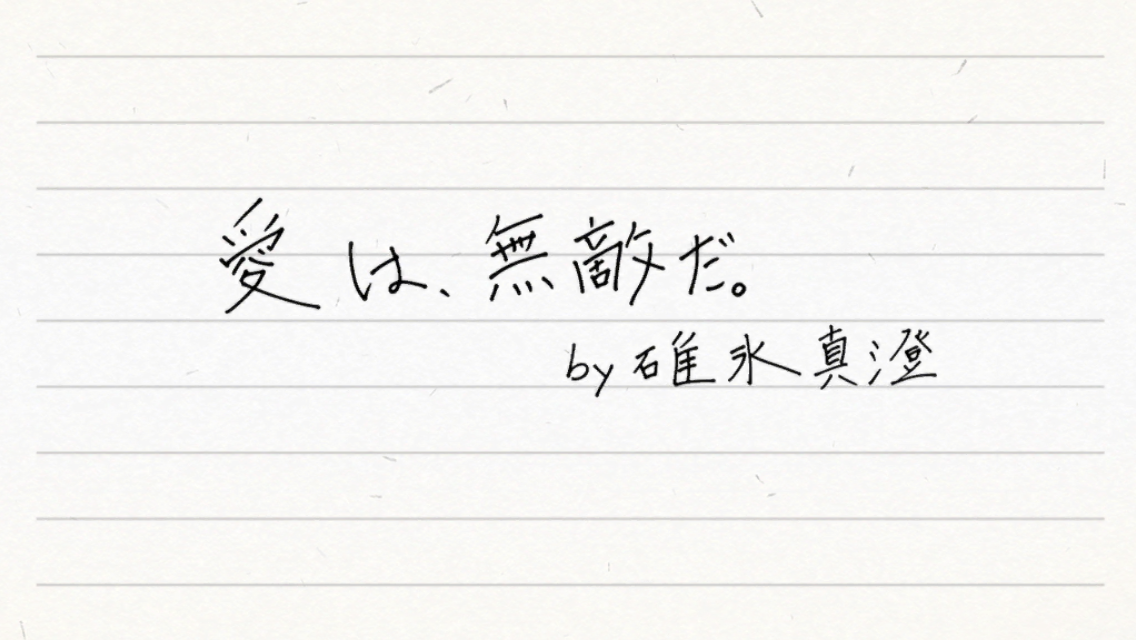 愛は、無敵だ。
by 碓氷真澄